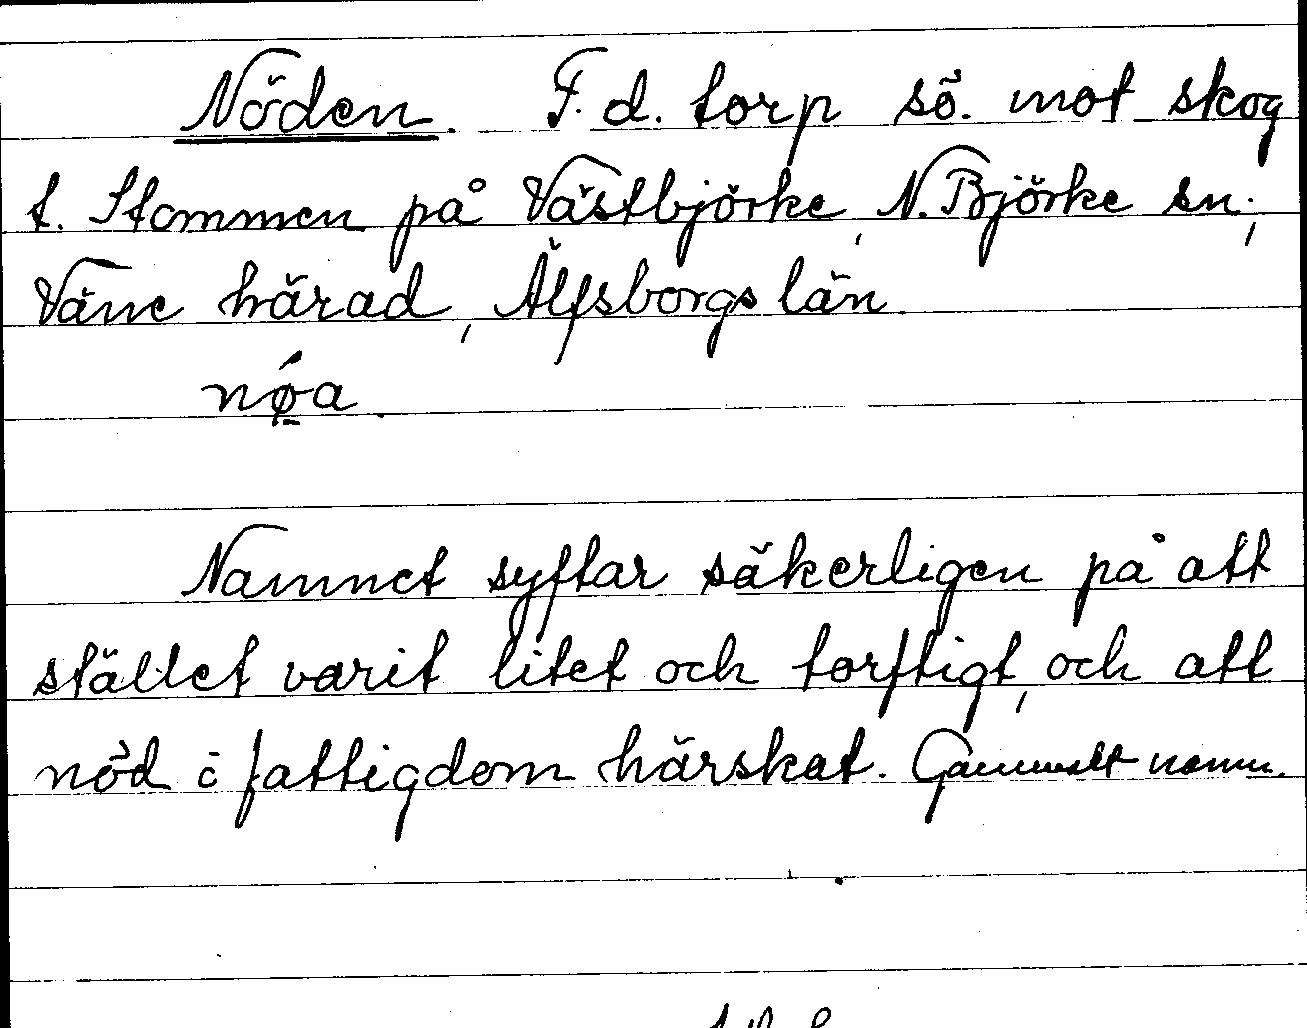 Nöden. F. d. torp sö. mot skog
t. Stommen på Västbjörke, N. Björke sn.,
Väne härad, Älfsborgs län.
nǿ̱a.
Namnet syftar säkerligen på att
stället varit litet och torftigt, och att
nöd o̅ fattigdom härskat. Gammalt namn.